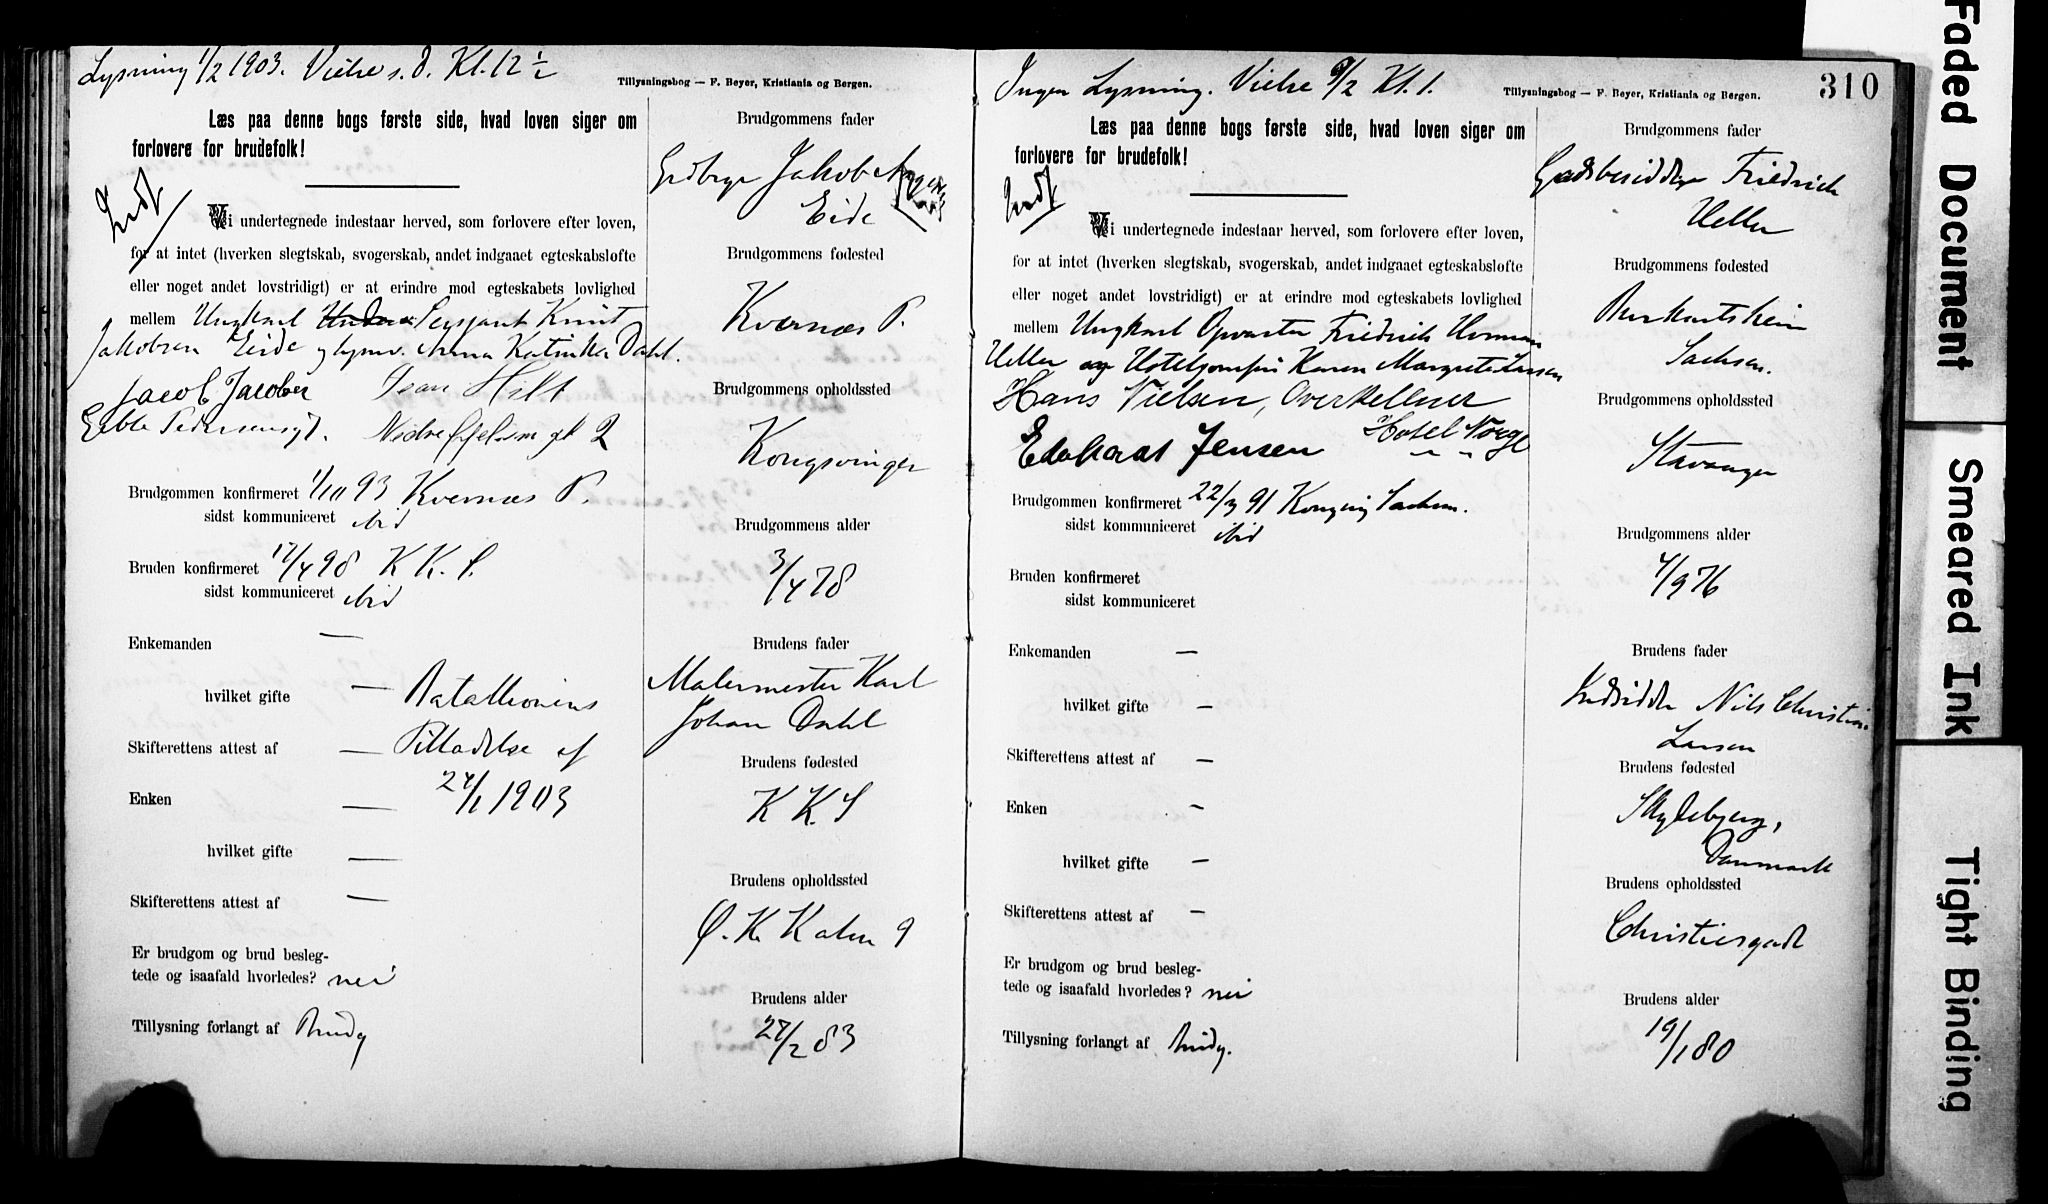 Lysning 1/2 1903. Vielse s. d. Kl. 12 1/2
Tillysningsbog — F. Beyer, Kristiania og Bergen.
Læs paa denne bogs første side, hvad loven siger om
forlovere for brudefolk!
Indf
Vi undertegnede indestaar herved, som forlovere efter loven,
for at intet (hverken slegtskab, svogerskab, andet indgaaet egteskabsløfte
eller noget andet lovstridigt) er at erindre mod egteskabets lovlighed
mellem Ungkarl Sergeant Knut
Jakobsen Eide og Anna Katinka Dahl.
Jacob Jacobsen Jean Hilt
Pedersensgt. 2
Brudgommen konfirmeret 1/10 93 Kvernæs P.
sidst kommuniceret ibid
Bruden konfirmeret 17/4 98 K K. S.
sidst kommuniceret ibid
Enkemanden —
hvilket gifte — Bataillonens
Skifterettens attest af — Tilladelse af
Enken — 24/1 1903
hvilket gifte —
Skifterettens attest af —
Er brudgom og brud besleg-
tede og isaafald hvorledes? nei
Tillysning forlangt af Brudg
Brudgommens fader
Grdbrgr Jakob
Eide
Brudgommens fødested
Kvernæs P.
Brudgommens opholdssted
Kongsvinger
Brudgommens alder
3/4 78
Brudens fader
Malermester Karl
Johan Dahl
Brudens fødested
K K. S
Brudens opholdssted
Ø. K. Kalv 9
Brudens alder
27/2 83
310
Ingen Lysning. Vielse 9/2 Kl. 1.
Tillysningsbog — F. Beyer, Kristiania og Bergen.
Læs paa denne bogs første side, hvad loven siger om
forlovere for brudefolk!
Indf
Vi undertegnede indestaar herved, som forlovere efter loven,
for at intet (hverken slegtskab, svogerskab, andet indgaaet egteskabsløfte
eller noget andet lovstridigt) er at erindre mod egteskabets lovlighed
mellem Ungkarl Opvarter Friedrich Herman
Heller og Hoteljomfru Karen Margrete Larsen
Hans Nielsen, Overkellner
Edvard Jensen Hotel Norge
Brudgommen konfirmeret 22/3 91 Sachsen.
sidst kommuniceret ibid
Bruden konfirmeret
sidst kommuniceret
Enkemanden —
hvilket gifte —
Skifterettens attest af —
Enken —
hvilket gifte —
Skifterettens attest af —
Er brudgom og brud besleg-
tede og isaafald hvorledes? nei
Tillysning forlangt af Brudg.
Brudgommens fader
Godsbesidder Friedrich
Heller
Brudgommens fødested
Burkartshein
Sachsen.
Brudgommens opholdssted
Stavanger
Brudgommens alder
4/9 76
Brudens fader
Nils Christian
Larsen
Brudens fødested
Skydebjerg,
Danmark
Brudens opholdssted
Christiesgade
Brudens alder
19/1 80
Faded Document
Smeared Ink
Tight Binding